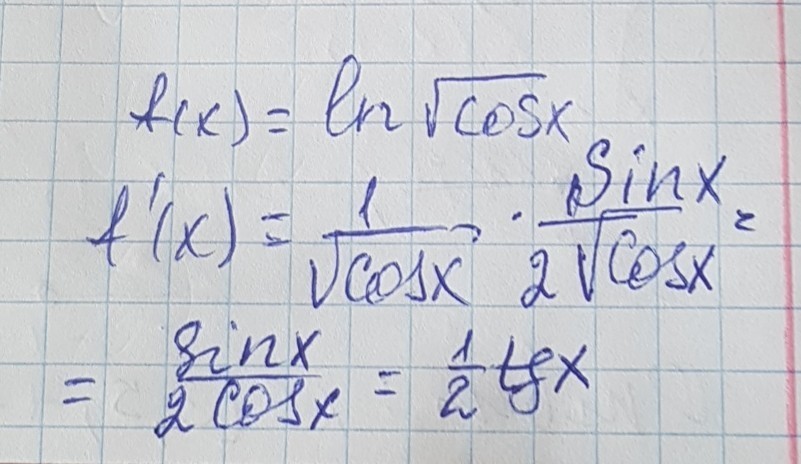 f(x) = ln √cosx
f'(x) = 1/√cosx · sinx/2√cosx =
= sinx/2cosx = 1/2 tgx